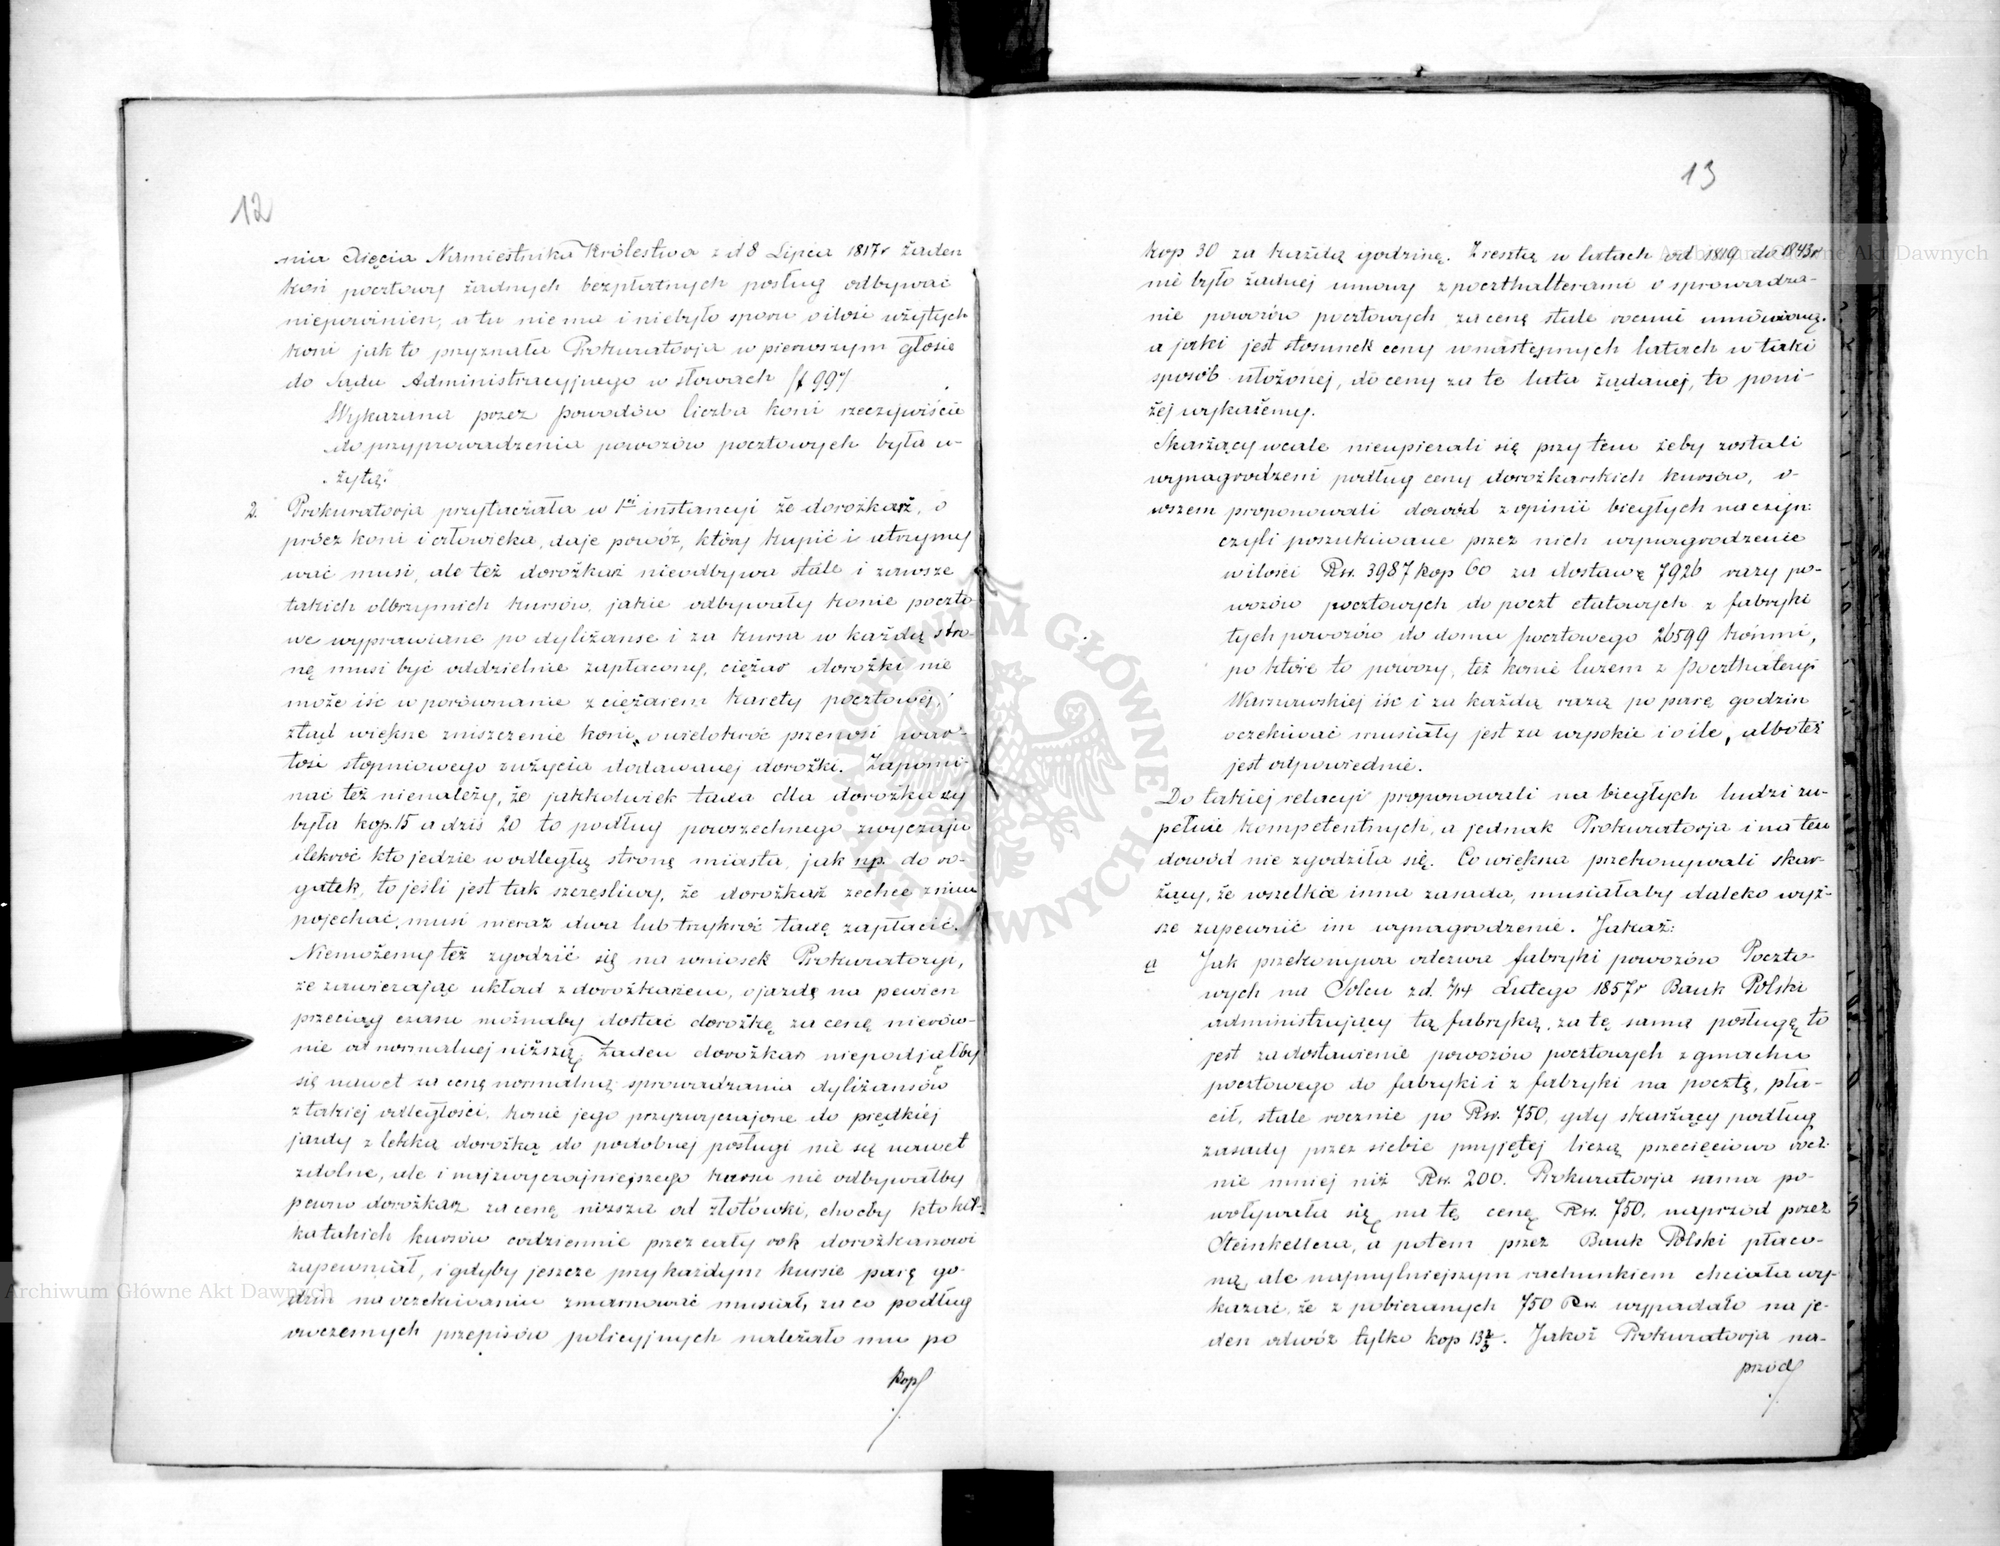 12
nia Xięcia Namiestnika Królestwa z d 8 Lipca 1817r żaden
koń pocztowy żadnych bezpłatnych posług odbywać
niepowinien, a tu nie ma i niebyło sporu o ilość użytych
koni jak to przyznała Prokuratorja w pierwszym głosie
do Sądu Administracyjnego w słowach (f 99)
Wykazana przez powodów liczba koni rzeczywiście
do przyprowadzenia powozów pocztowych była u-
żytą."
2. Prokuratorja przytaczała w 1ej instancyi że dorożkarz, o
prócz koni i człowieka, daje powóz, który kupić i utrzymy
wać musi, ale też dorożkarz nieodbywa stale i zawsze
takich olbrzymich kursów, jakie odbywały konie poczto
we wyprawiane po dyliżanse i za kursa w każdą stro-
nę musi być oddzielnie zapłacony, ciężar dorożki nie
może iść w porównanie z ciężarem karety pocztowej,
ztąd większe zniszczenie koni, o wielokroć przenosi war-
tość stopniowego zużycia dodawanej dorożki. Zapomi-
nać też nienależy, że jakkolwiek taxa dla dorożkarzy
była kop. 15 a dziś 20 to podług powszechnego zwyczaju
ilekroć kto jedzie w odległą stronę miasta, jak np. do ro-
gatek, to jeśli jest tak szczęśliwy, że dorożkarz zechce z nim
pojechać, musi nieraz dwa lub trzykroć taxę zapłacić.
Niemożemy też zgodzić się na wniosek Prokuratoryi,
że zawierając układ z dorożkarzem, o jazdę na pewien
przeciąg czasu możnaby dostać dorożkę za cenę nierów-
nie od normalnej niższą. Żaden dorożkarz niepodjąłby
się nawet za cenę normalną sprowadzania dyliżansów
z takiej odległości, konie jego przyzwyczajone do prędkiej
jazdy z lekką dorożką do podobnej posługi nie są nawet
zdolne, ale i najzwyczajniejszego kursu nie odbywałby
pewno dorożkarz za cenę niższą od złotówki, choćby kto kil-
ka takich kursów codziennie przez cały rok dorożkarzowi
zapewniał, i gdyby jeszcze przy każdym kursie parę go-
dzin na oczekiwaniu zmarnować musiał, za co podług
owczesnych przepisów policyjnych należało mu po
kop
13
kop 30 za każdą godzinę. Zresztą w latach od 1819 do 1843r
nie było żadnej umowy z poczthalterami o sprowadza-
nie powozów pocztowych za cenę stale rocznie umówioną,
a jaki jest stosunek ceny w następnych latach w taki
sposób ułożonej, do ceny za te lata żądanej, to poni-
żej wykażemy.
Skarżący wcale nieupierali się przy tem żeby zostali
wynagrodzeni podług ceny dorożkarskich kursów, o-
wszem proponowali dowód z opinii biegłych na czyn:
czyli poszukiwane przez nich wynagrodzenie
w ilości Rsr. 3987 kop 60 za dostawę 7926 razy po-
wozów pocztowych do poczt etatowych z fabryki
tych powozów do domu pocztowego 26599 końmi,
po które to powozy, też konie luzem z Poczthalteryi
Warszawskiej iść i za każdą razą po parę godzin
oczekiwać musiały jest za wysokie i o ile, albo też
jest odpowiednie.
Do takiej relacyi proponowali na biegłych ludzi zu-
pełnie kompetentnych, a jednak Prokuratorja i na ten
dowód nie zgodziła się. Co większa przekonywali skar-
żący, że wszelkie inna zasada, musiałaby daleko wyż-
sze zapewnić im wynagrodzenie. Jakaż:
a Jak przekonywa odezwa fabryki powozów Poczto
wych na Solcu z d. 2/14 Lutego 1857r Bank Polski
administrujący tą fabryką, za tę sama posługę to
jest za dostawienie powozów pocztowych z gmachu
pocztowego do fabryki i z fabryki na pocztę, pła-
cił, stale rocznie po Rsr. 750, gdy skarżący podług
zasady przez siebie przyjętej liczą przecięciowo rocz-
nie mniej niż Rsr. 200. Prokuratorja sama po-
woływała się na tę cenę Rsr. 750, naprzód przez
Steinkellera, a potem przez Bank Polski płaco-
ną, ale najmylniejszym rachunkiem chciała wy-
kazać, że z pobieranych 750 Rsr. wypadało na je-
den odwóz tylko kop 13 2/3. Jakoż Prokuratorja na-
przód
Archiwum Główne Akt Dawnych
Archiwum Główne Akt Dawnych
ARCHIWUM GŁÓWNE AKT DAWNYCH